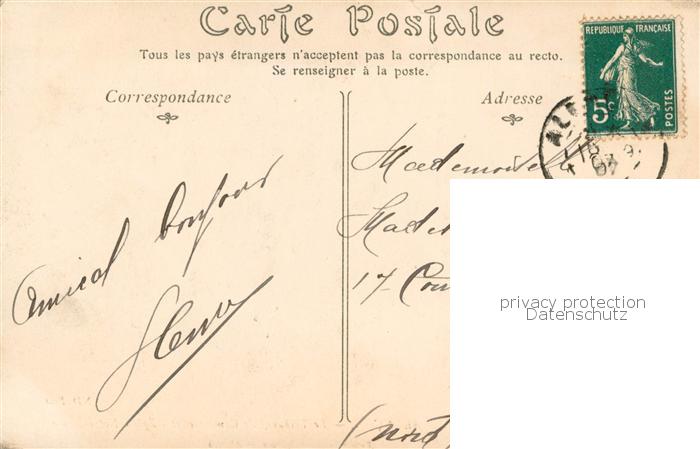 Carte Postale
Tous les pays étrangers n'acceptent pas la correspondance au recto.
Se renseigner à la poste.
Correspondance
Adresse
RÉPUBLIQUE FRANÇAISE
5c
POSTES
Amical bonjour
Mademoiselle
17
privacy protection
Datenschutz